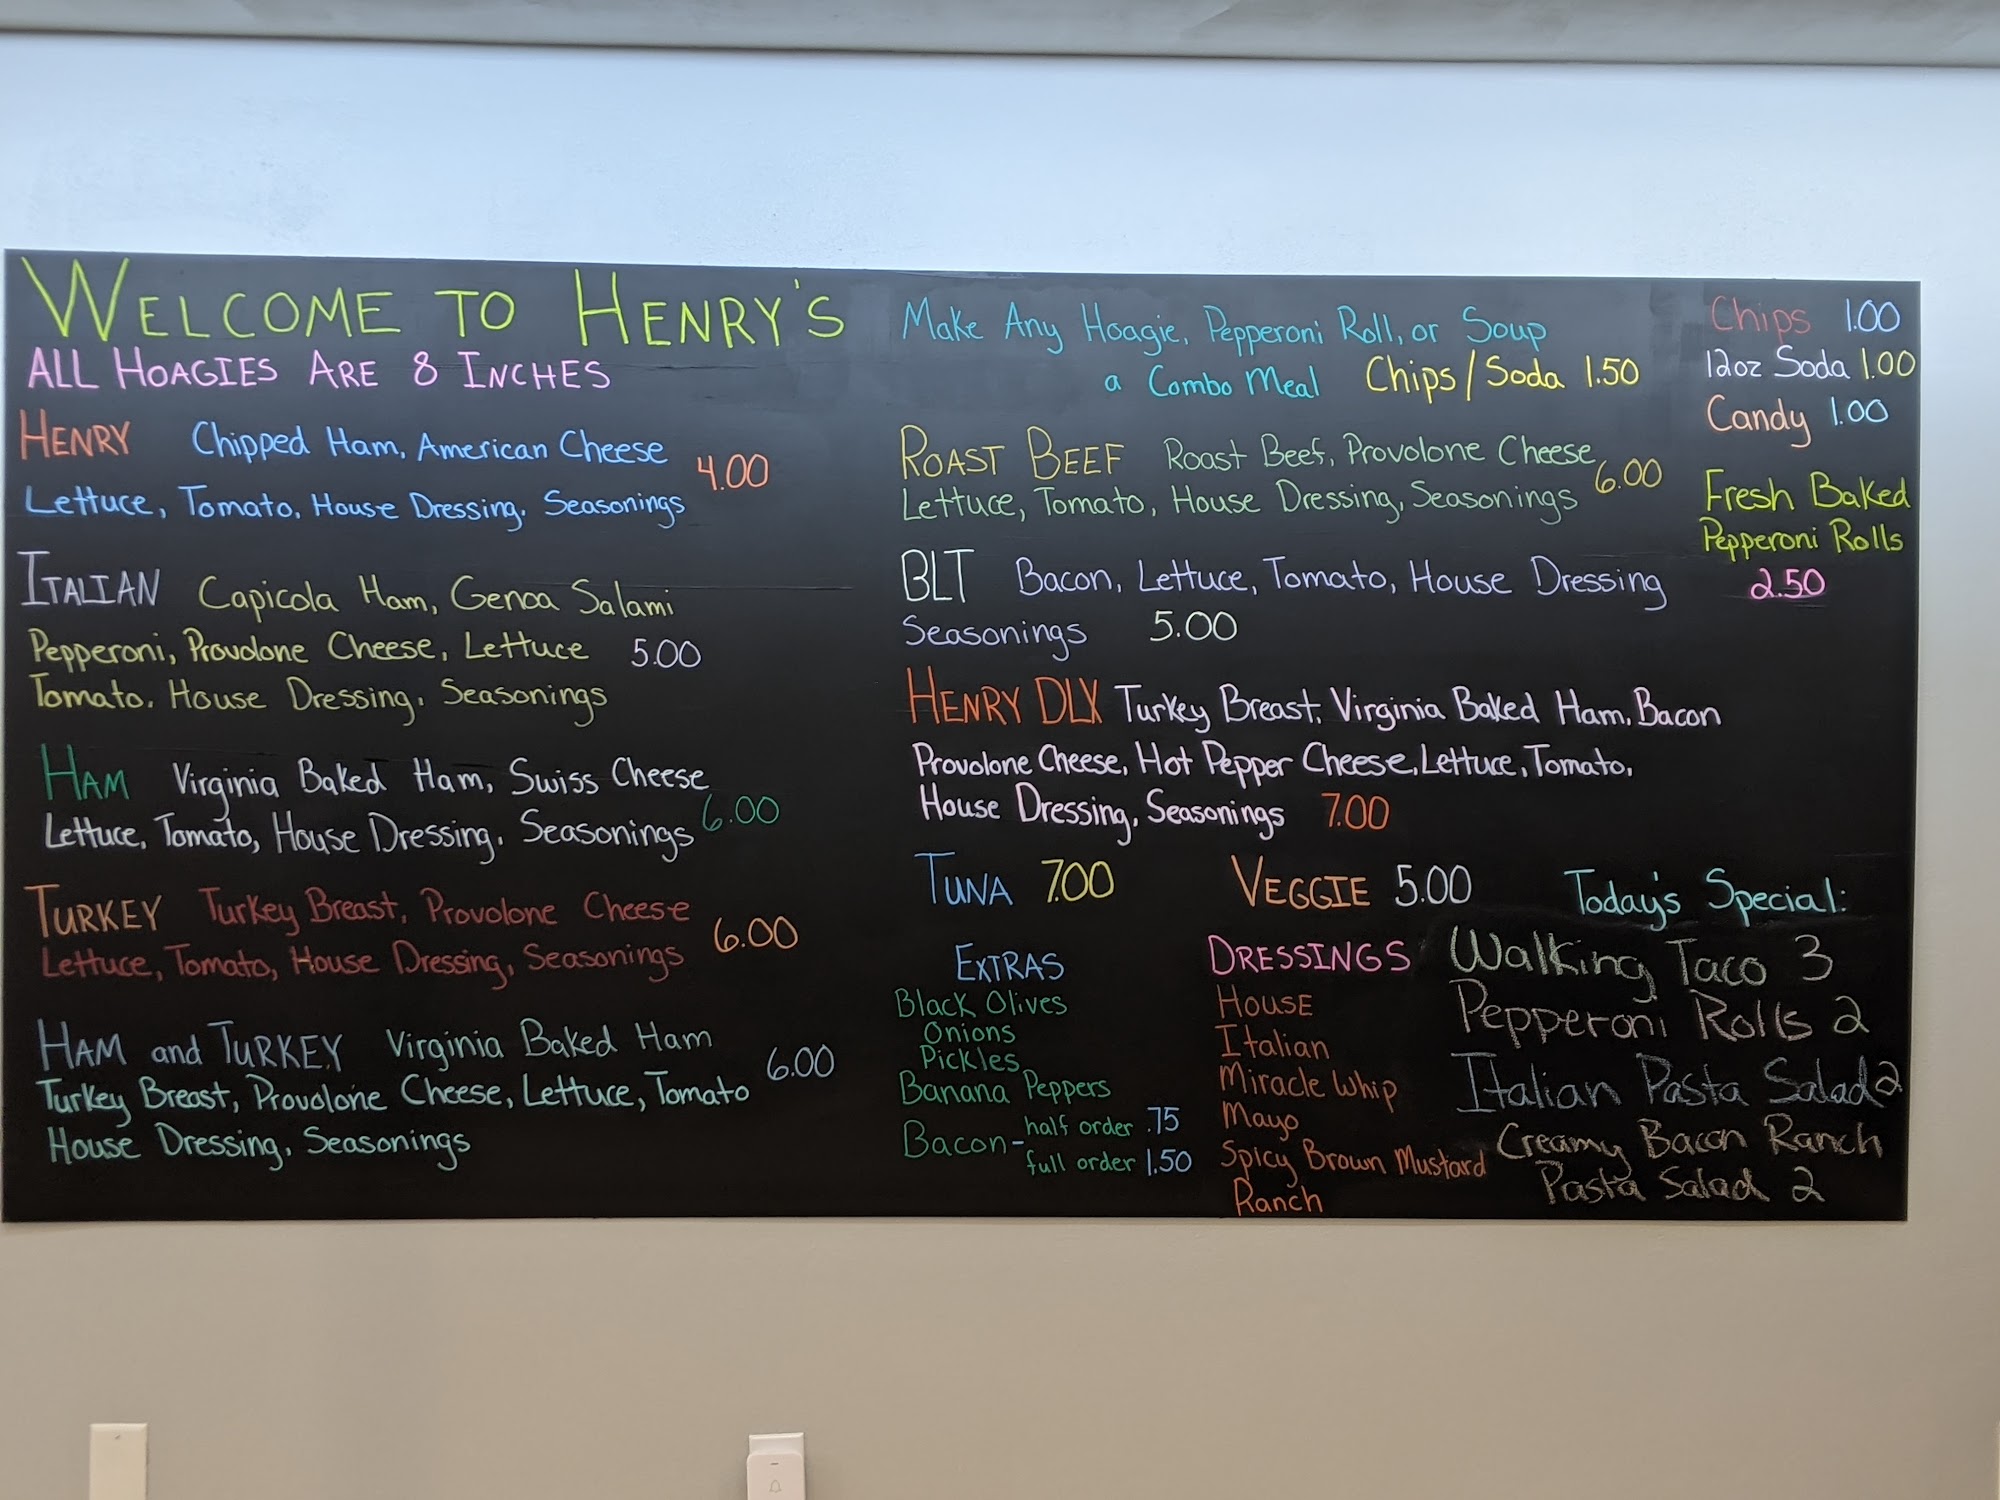 WELCOME TO HENRY'S
ALL HOAGIES ARE 8 INCHES
HENRY Chipped Ham, American Cheese
Lettuce, Tomato, House Dressing, Seasonings 4.00
ITALIAN Capicola Ham, Genoa Salami
Pepperoni, Provolone Cheese, Lettuce 5.00
Tomato, House Dressing, Seasonings
HAM Virginia Baked Ham, Swiss Cheese
Lettuce, Tomato, House Dressing, Seasonings 6.00
TURKEY Turkey Breast, Provolone Cheese
Lettuce, Tomato, House Dressing, Seasonings 6.00
HAM and TURKEY Virginia Baked Ham
Turkey Breast, Provolone Cheese, Lettuce, Tomato 6.00
House Dressing, Seasonings
Make Any Hoagie, Pepperoni Roll, or Soup
a Combo Meal Chips/Soda 1.50
ROAST BEEF Roast Beef, Provolone Cheese
Lettuce, Tomato, House Dressing, Seasonings 6.00
BLT Bacon, Lettuce, Tomato, House Dressing
Seasonings 5.00
HENRY DLX Turkey Breast, Virginia Baked Ham, Bacon
Provolone Cheese, Hot Pepper Cheese, Lettuce, Tomato,
House Dressing, Seasonings 7.00
TUNA 7.00
VEGGIE 5.00
EXTRAS
Black Olives
Onions
Pickles
Banana Peppers
Bacon- half order .75
full order 1.50
DRESSINGS
House
Italian
Miracle Whip
Mayo
Spicy Brown Mustard
Ranch
Chips 1.00
12oz Soda 1.00
Candy 1.00
Fresh Baked
Pepperoni Rolls
2.50
Today's Special:
Walking Taco 3
Pepperoni Rolls 2
Italian Pasta Salad 2
Creamy Bacon Ranch
Pasta Salad 2